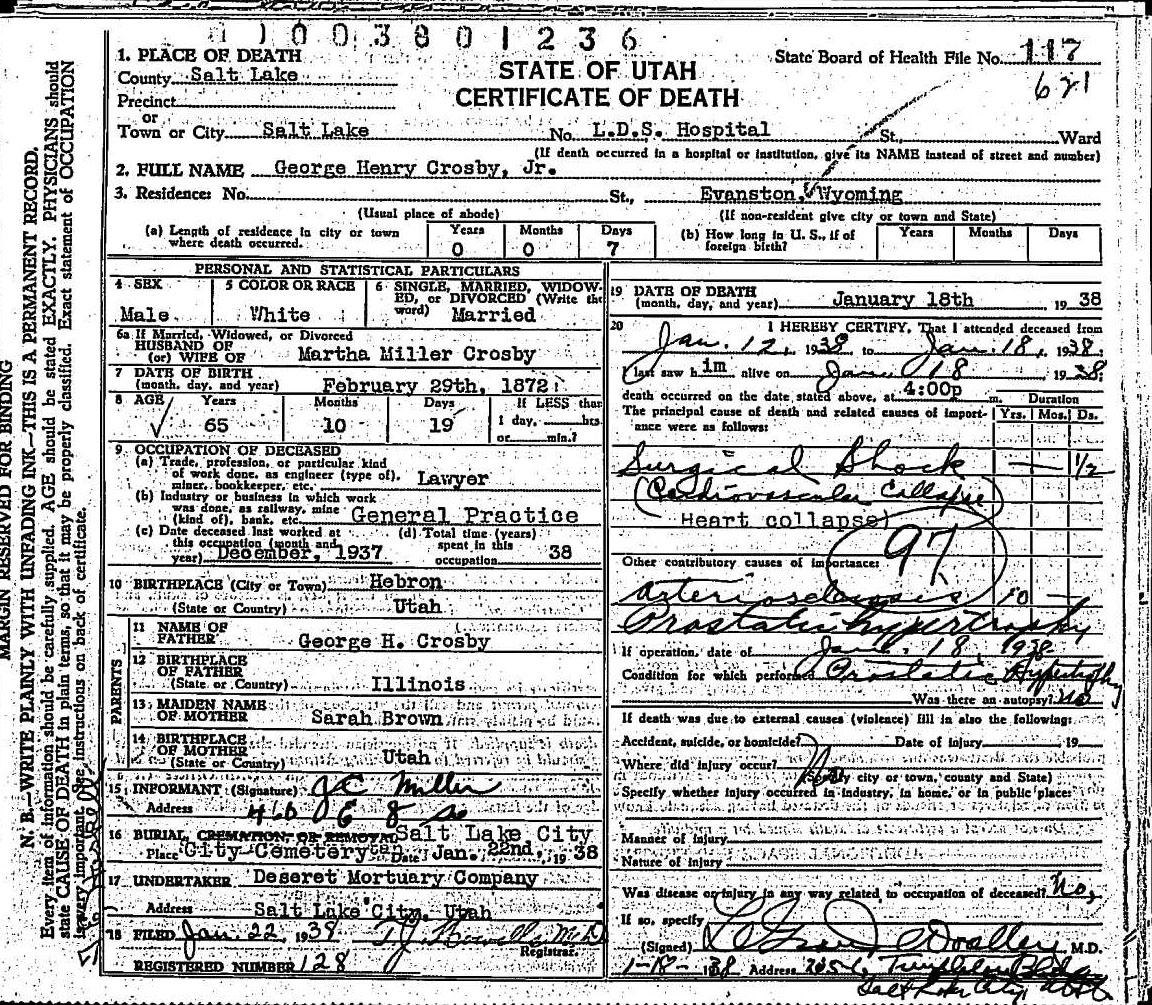 11003801236
1. PLACE OF DEATH
County Salt Lake
Precinct
or
Town or City Salt Lake No. L.D.S. Hospital St. Ward
STATE OF UTAH
CERTIFICATE OF DEATH
State Board of Health File No. 117
621
(If death occurred in a hospital or institution, give its NAME instead of street and number)
2. FULL NAME George Henry Crosby, Jr.
3. Residence: No. St., Evanston, Wyoming
(Usual place of abode) (If non-resident give city or town and State)
(a) Length of residence in city or town where death occurred. Years 0 Months 0 Days 7
(b) How long in U. S., if of foreign birth? Years Months Days
PERSONAL AND STATISTICAL PARTICULARS
4 SEX Male
5 COLOR OR RACE White
6 SINGLE, MARRIED, WIDOWED, or DIVORCED (Write the word) Married
6a If Married, Widowed, or Divorced
HUSBAND OF
(or) WIFE OF Martha Miller Crosby
7 DATE OF BIRTH
(month, day, and year) February 29th, 1872
8 AGE Years 65 Months 10 Days 19 If LESS than 1 day, hrs. or min.?
9 OCCUPATION OF DECEASED
(a) Trade, profession, or particular kind of work done, as engineer (type of), miner, bookkeeper, etc. Lawyer
(b) Industry or business in which work was done, as railway, mine (kind of), bank, etc. General Practice
(c) Date deceased last worked at this occupation (month and year) December, 1937
(d) Total time (years) spent in this occupation 38
10 BIRTHPLACE (City or Town) Hebron
(State or Country) Utah
PARENTS
11 NAME OF FATHER George H. Crosby
12 BIRTHPLACE OF FATHER
(State or Country) Illinois
13 MAIDEN NAME OF MOTHER Sarah Brown
14 BIRTHPLACE OF MOTHER
(State or Country) Utah
15 INFORMANT (Signature) J C Miller
Address 460 E 8 So
16 BURIAL CREMATION OR REMOVAL Salt Lake City
Place City Cemetery Date Jan. 22nd, 1938
17 UNDERTAKER Deseret Mortuary Company
Address Salt Lake City, Utah
18 FILED Jan. 22, 1938 T J Howells M.D.
Registrar.
REGISTERED NUMBER 128
19 DATE OF DEATH
(month, day, and year) January 18th 1938
20 I HEREBY CERTIFY, That I attended deceased from
Jan. 12, 1938 to Jan. 18, 1938.
I last saw him alive on Jan. 18 1938;
death occurred on the date stated above, at 4:00p m.
Duration
Yrs. Mos. Ds.
The principal cause of death and related causes of importance were as follows:
Surgical Shock — — 1/2
(Cardiovascular Collapse)
Heart collapse)
97
Other contributory causes of importance:
Arteriosclerosis 10 —
Prostatic hypertrophy
If operation, date of Jan. 18, 1938
Condition for which performed Prostatic Hypertrophy
Was there an autopsy? no
If death was due to external causes (violence) fill in also the following:
Accident, suicide, or homicide? Date of injury 19
Where did injury occur? No
(Specify city or town, county and State)
Specify whether injury occurred in industry, in home, or in public place:
Manner of injury
Nature of injury
Was disease or injury in any way related to occupation of deceased? No,
If so, specify
(Signed) M.D.
1-18-1938 Address Templeton Bldg
Salt Lake City, Utah
MARGIN RESERVED FOR BINDING
N. B.—WRITE PLAINLY WITH UNFADING INK—THIS IS A PERMANENT RECORD.
Every item of information should be carefully supplied. AGE should be stated EXACTLY. PHYSICIANS should
state CAUSE OF DEATH in plain terms, so that it may be properly classified. Exact statement of OCCUPATION
is very important. See instructions on back of certificate.